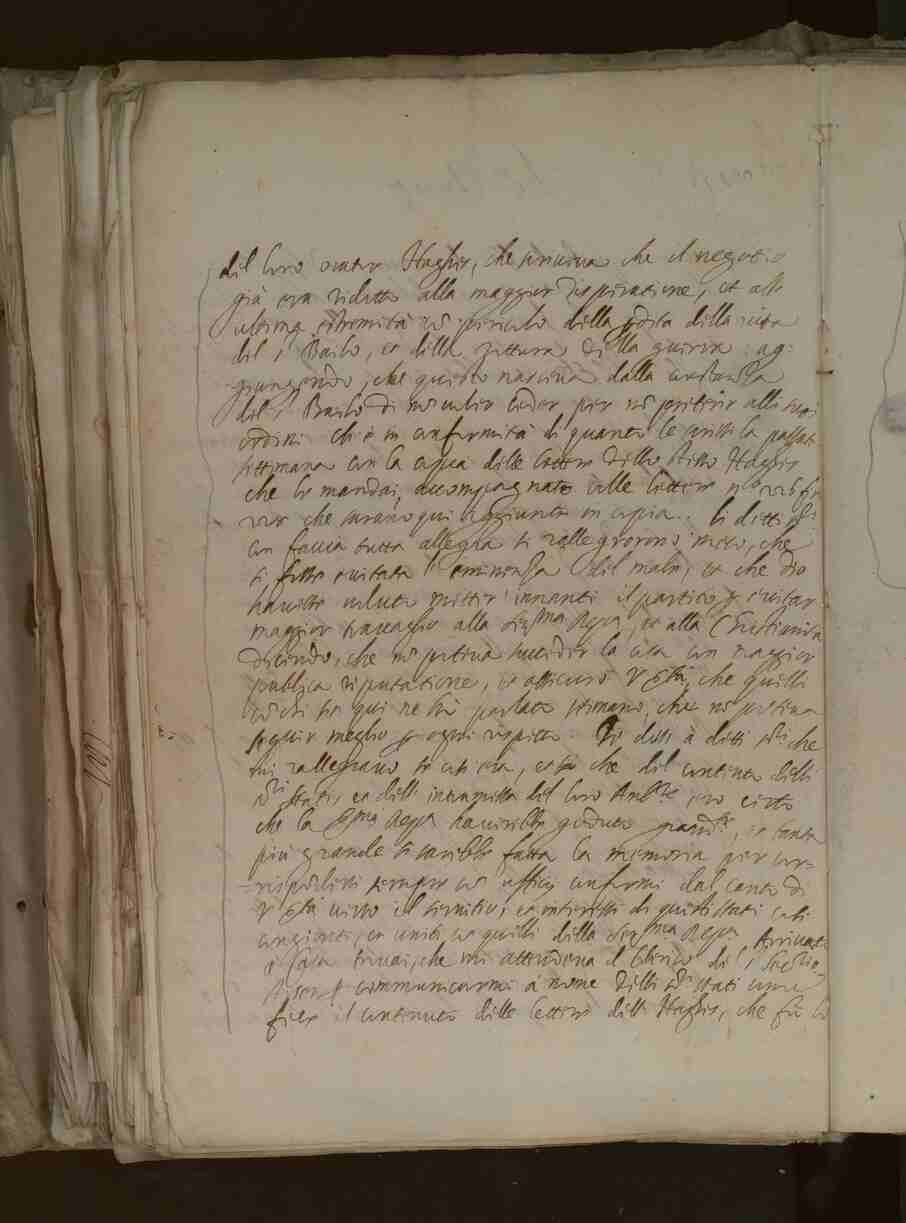 del loro orator Haghis, che scriveva che il negotio
già era ridutto alla maggior desperatione, et all
ultima estremità cō pericolo della perdita della vita
del S. Bailo, et della rottura della guerra: ag:
giungendo, che questo nasceva dalla constanza
del S. Bailo di nō voler ceder per nō preterir alli suoi
ordini ch'è in conformità di quanto le scrissi la passata
settimana con la coppia delle lettere dello stesso Haghis
che le mandai, accompagnate alle lettere
che saranno qui aggiunte in copia. Li detti Sri
con faccia tutta allegra si rallegrorono meco, che
si fosse evitata l'eminenza del male, et che Dio
havesse voluto metter innanti il partito p evitar
maggior travaglio alla Sermа Repa, et alla Christianità
dicendo, che nō poteva succeder la cosa con maggior
publica riputatione, et assicuro V Stà, che quelli
cō chi fin qui ne hò parlato stimano, che nō poteva
seguir meglio p ogni rispetto. Io dissi à detti Sri che
mi rallegravo di cosi, che del contento delli
Sri Stati, et dell' del loro Ambre, ero certo
che la Serma Repa haverebbe goduto grande, et tanto
più grande si sarebbe fatta la memoria per cor=
=rispoderli sempre cō officij conformi dal canto di
V Stà verso il servitio, et interessi di questi stati così
congionti, et uniti cō quelli della Serma Repa. Arrivato
à casa trovai, che mi attendeva il Clerico del S. Secrio
p communicarmi à nome delli Sri stati come
fece il contenuto delle lettere dell Haghis, che fù lo